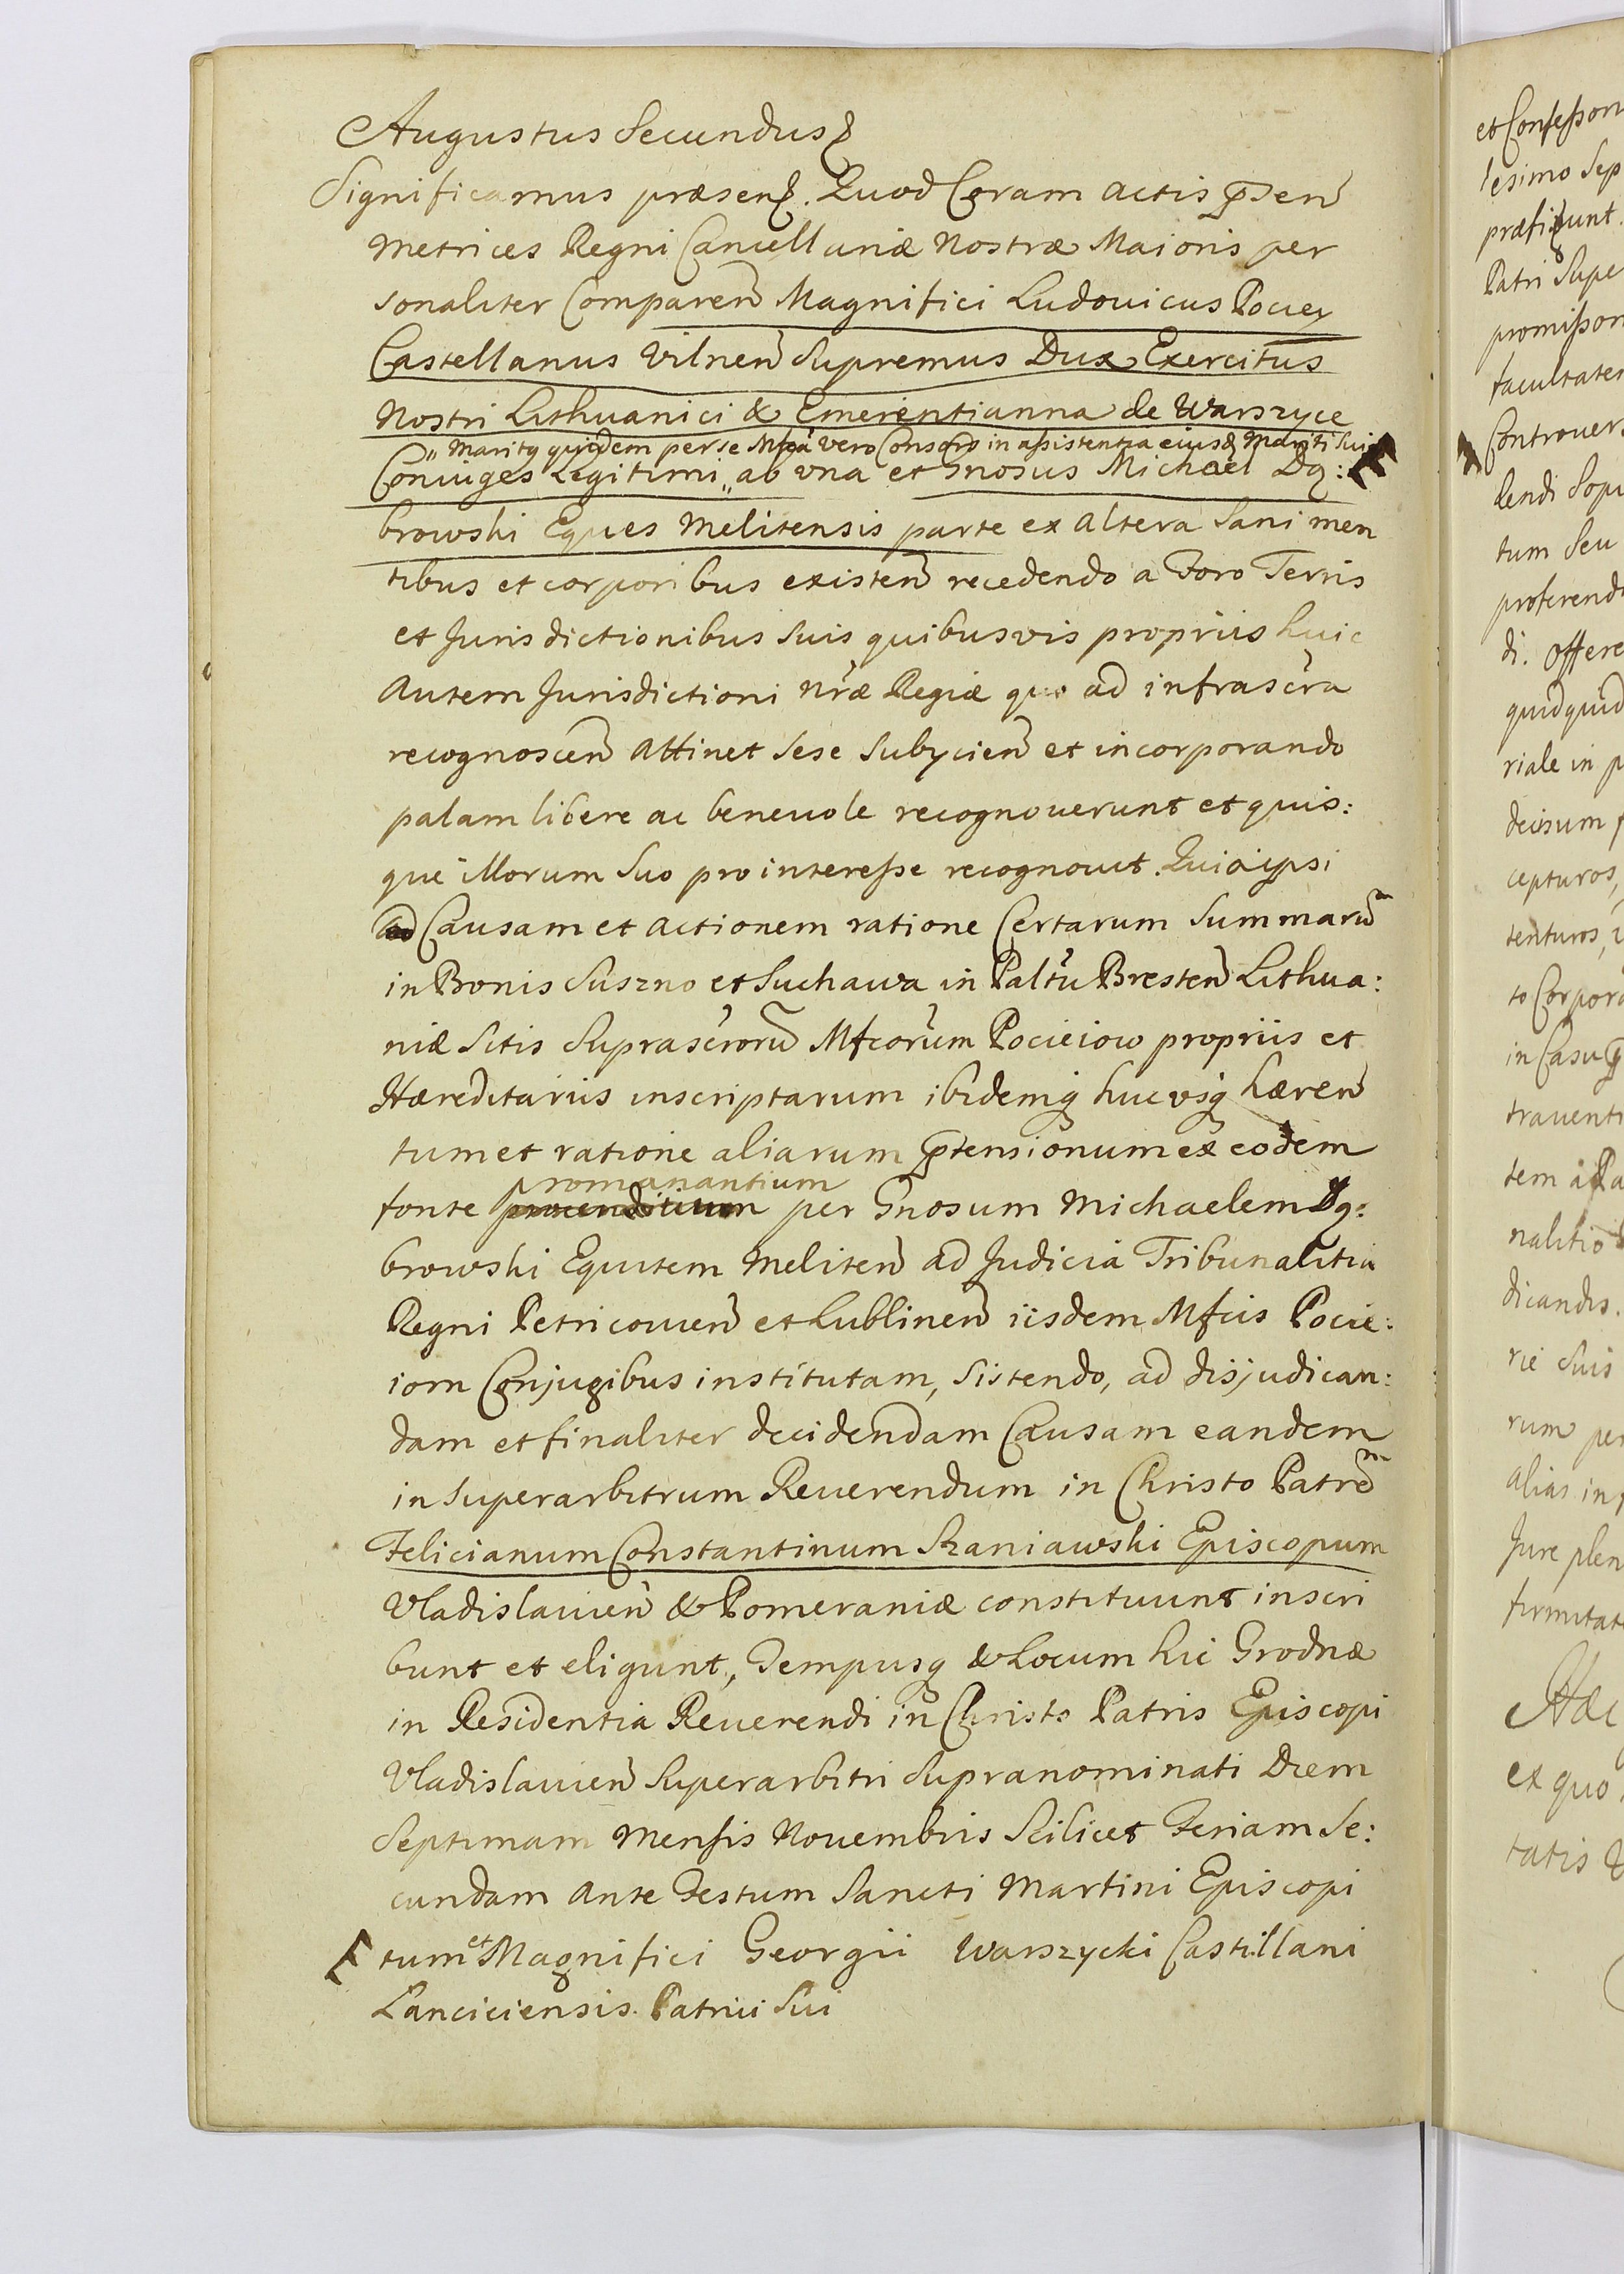 Augustus Secundus
Significamus præsen. Quod Coram actis pñsen
Metrices Regni Cancellariæ Nostræ Maioris per
sonaliter Comparen Magnifici Ludovicus Pociey
Castellanus Vilnen Supremus Dux Exercitus
Nostri Lithuanici & Emerentianna de Warszyce
„ Maritq quidem per se Mfca vero Consors in assistentia eiusd Mariti Sui
Coniuges Legitimi „ ab una et Gnosus Michael Dą:
browski Eques Melitensis parte ex altera Sani men
tibus et corporibus existen recedendo a Foro Terris
et Jurisdictionibus suis quibusvis propriis huic
autem Jurisdictioni nræ Regiæ quo ad infrascra
recognoscen attinet sese subycien et incorporando
palam libere ac benevole recognouerunt et quis:
que illorum suo pro interesse recognouit. Quia ipsi
ad Causam et actionem ratione Certarum Summarum
in Bonis Suszno et Suchawa in Paltu Bresten Lithua:
niæ Sitis Suprascrorum Mfcorum Pocieiow propriis et
Hæreditariis inscriptarum ibidemq hucvsq hæren
tum et ratione aliarum ptensionum ex eodem
promanantium
fonte per Gnosum Michaelem Dą:
browski Equitem Meliten ad Judicia Tribunalitia
Regni Petricouien et Lublinen iisdem Mfcis Pocie:
iom Conjugibus institutam, sistendo, ad disjudican:
dam et finaliter decidendam Causam eandem
in Superarbitrum Reuerendum in Christo Patrem
Felicianum Constantinum Szaniawski Episcopum
Vladislauien & Pomeraniæ constituunt inscri
bunt et eligunt, Tempusq & Locum hic Grodnæ
in Residentia Reuerendi in Christo Patris Episcopi
Vladislauien Superarbitri Supranominati Diem
Septimam Mensis Nouembris Scilicet Feriam Se:
cundam ante Festum Sancti Martini Episcopi
tum et Magnifici Georgii Warszycki Castellani
Lanciciensis Patrui Sui
et Confesson
lesimo Sep
præfi
Patri Supe
promisson
facultatem
Controuers
lendi Sopi
tum Seu
proferend
di. offere
quidquid
riale in p
decisum
cepturos,
tenturos,
to Corpora
in Casu
trauent
tem
nalitio
dicandis.
rie Suis
rum per
alias in
Jure plen
firmitat
Hæc
ex quo
tatis